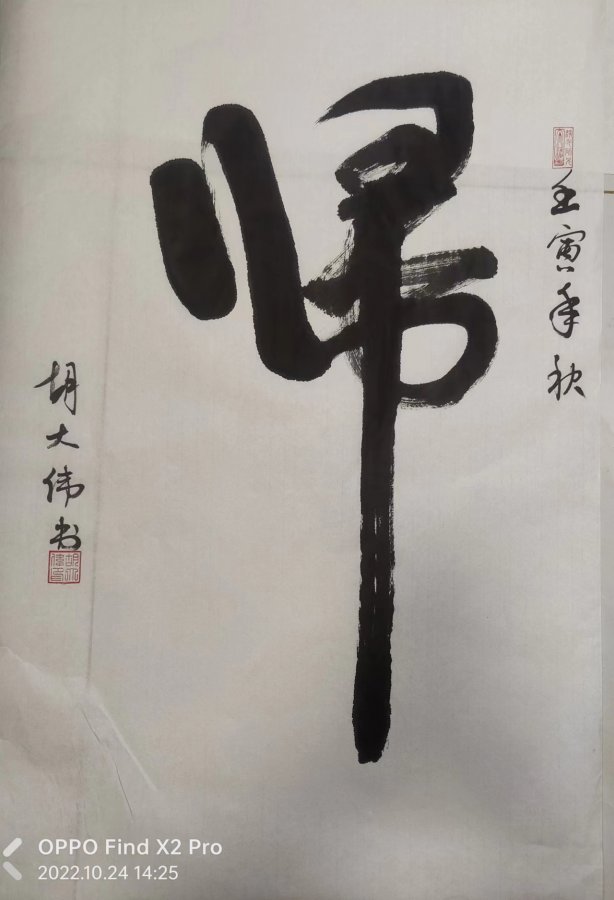 壬寅年秋
帰
胡大伟书
OPPO Find X2 Pro
2022.10.24 14:25